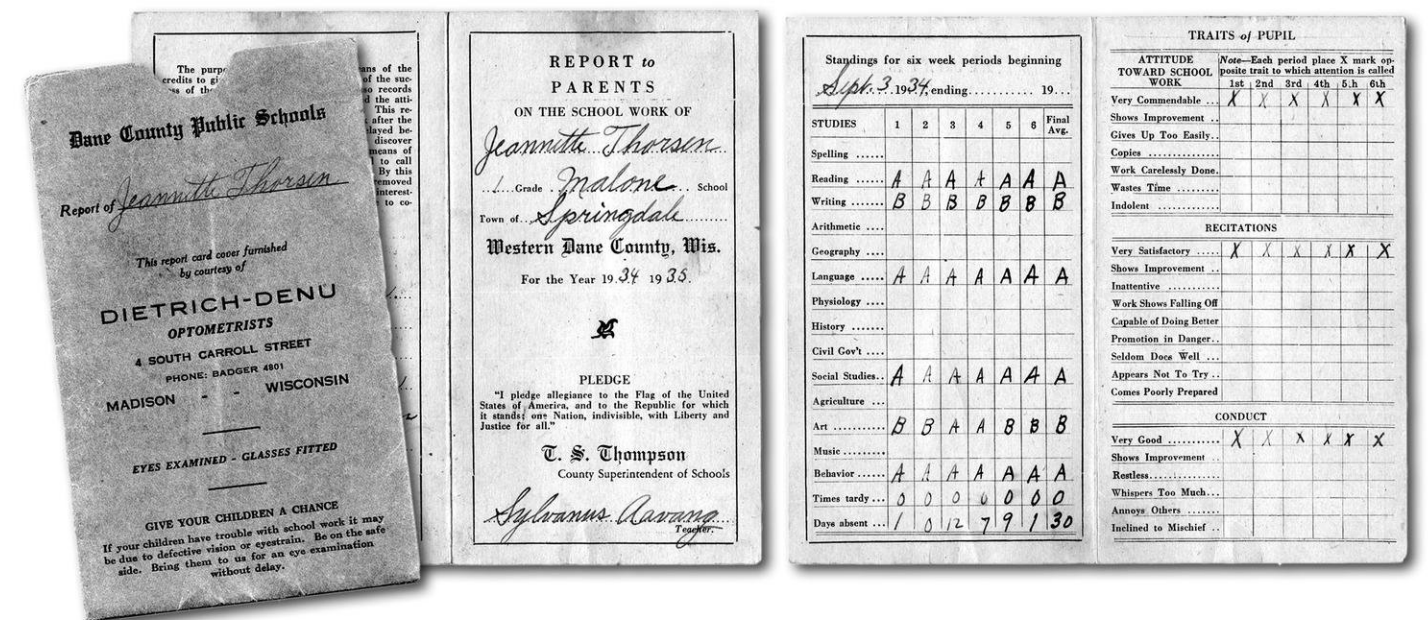 Dane County Public Schools
Report of Jeannette Thorsen
This report card cover furnished
by courtesy of
DIETRICH-DENU
OPTOMETRISTS
4 SOUTH CARROLL STREET
PHONE: BADGER 4801
MADISON - - WISCONSIN
EYES EXAMINED - GLASSES FITTED
GIVE YOUR CHILDREN A CHANCE
If your children have trouble with school work it may
be due to defective vision or eyestrain. Be on the safe
side. Bring them to us for an eye examination
without delay.
The purp
credits to gi
ss of the
ans of the
of the suc-
so records
d the atti-
This re-
after the
layed be-
discover
means of
l to call
By this
removed
interest-
to co-
REPORT to
PARENTS
ON THE SCHOOL WORK OF
Jeannette Thorsen
1 Grade Malone School
Town of Springdale
Western Dane County, Wis.
For the Year 1934 1935.
PLEDGE
"I pledge allegiance to the Flag of the United
States of America, and to the Republic for which
it stands; one Nation, indivisible, with Liberty and
Justice for all."
T. S. Thompson
County Superintendent of Schools
Sylvanus Aavang
Teacher.
Standings for six week periods beginning
Sept. 3 1934, ending........... 19...
STUDIES 1 2 3 4 5 6 Final Avg.
Spelling ......
Reading ...... A A A A A A A
Writing ...... B B B B B B B
Arithmetic ....
Geography ....
Language ..... A A A A A A A
Physiology ....
History .......
Civil Gov't ....
Social Studies.. A A A A A A A
Agriculture ...
Art ........... B B A A B B B
Music .........
Behavior ...... A A A A A A A
Times tardy ... 0 0 0 0 0 0 0
Days absent ... 1 0 12 7 9 1 30
TRAITS of PUPIL
ATTITUDE TOWARD SCHOOL WORK
Note—Each period place X mark op-
posite trait to which attention is called
1st 2nd 3rd 4th 5.h 6th
Very Commendable ... X X X X X X
Shows Improvement ..
Gives Up Too Easily..
Copies .............
Work Carelessly Done.
Wastes Time ........
Indolent ...........
RECITATIONS
Very Satisfactory ..... X X X X X X
Shows Improvement ..
Inattentive ..........
Work Shows Falling Off
Capable of Doing Better
Promotion in Danger..
Seldom Does Well ...
Appears Not To Try ..
Comes Poorly Prepared
CONDUCT
Very Good ........... X X X X X X
Shows Improvement ..
Restless.............
Whispers Too Much...
Annoys Others .......
Inclined to Mischief ..